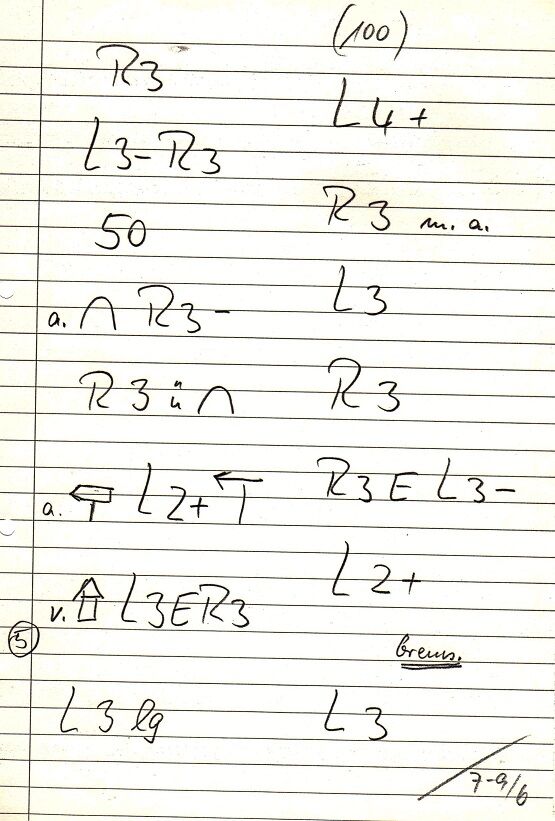 R3
L3-R3
50
a. ∩ R3-
R3 ü ∩
a. L2+
v. L3ER3
5
L3 lg
(100)
L4+
R3 m. a.
L3
R3
R3 E L3-
L2+
brems.
L3
7-9/6